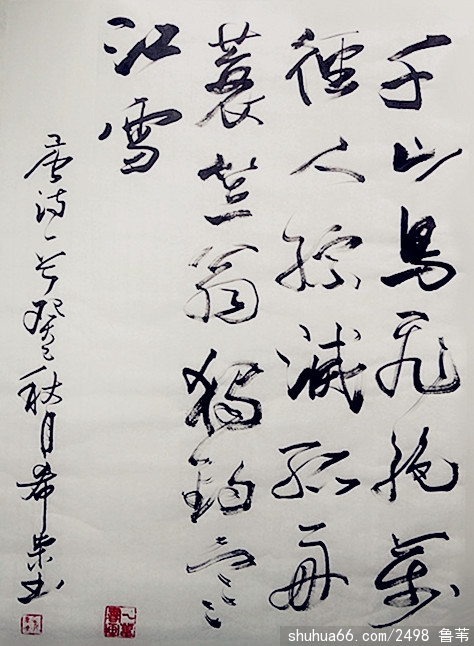 千山鳥飛絶萬
徑人踪滅孤舟
蓑笠翁獨釣寒
江雪
唐诗一首癸巳秋月希书
shuhua66.com/2498 鲁苇